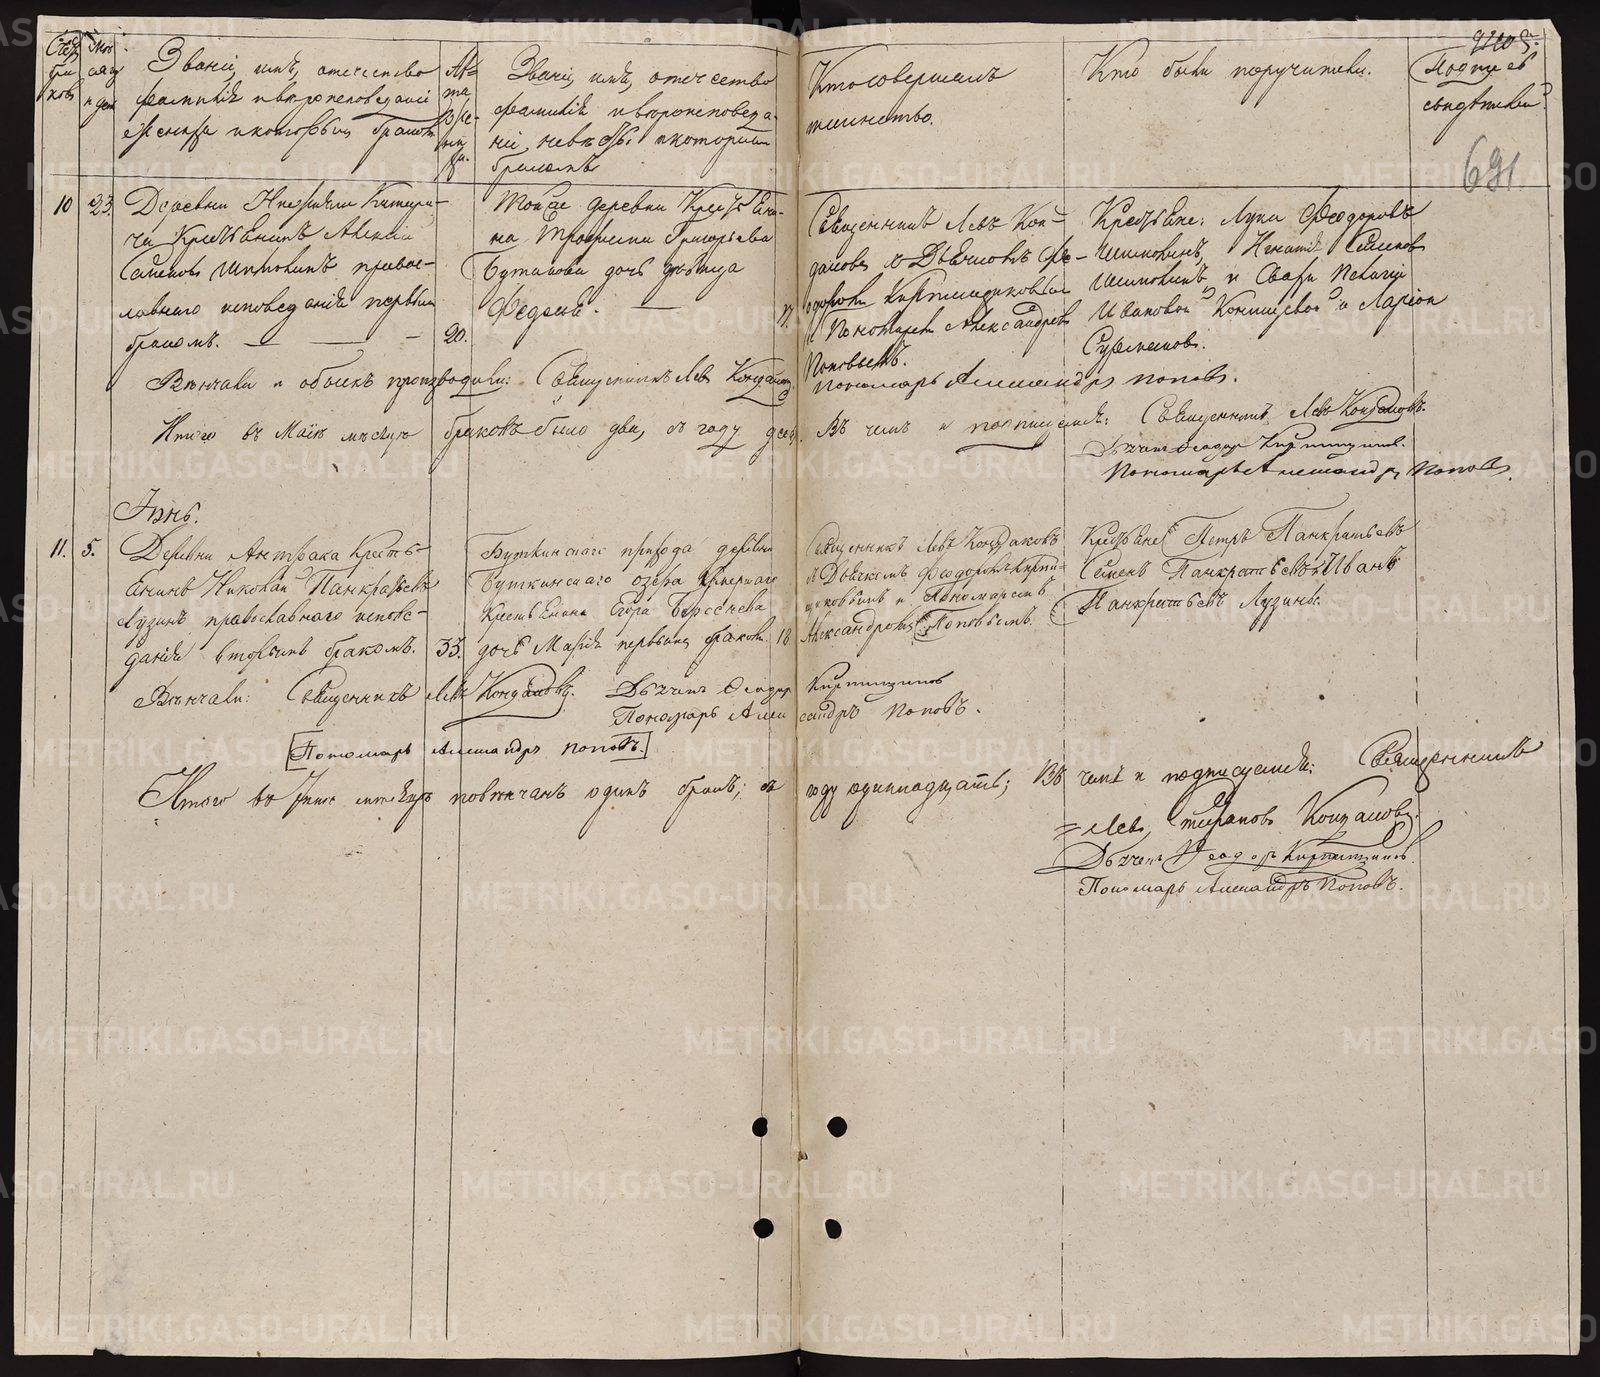 Счетъ браковъ
Мѣсяцъ и день
Званіе, имя, отечество
фамилія и вѣроисповѣданіе
жениха и которымъ бракомъ
Лѣта жениха.
Званіе, имя, отечество
фамилія и вѣроисповѣда-
ніе невѣсты и которымъ
бракомъ
Кто совершалъ
таинство.
Кто были поручители.
Подпись
свидѣтелей
691
10 23. Деревни
Крестьянинъ Алексій
Семеновъ Шишкинъ правос-
лавнаго исповеданія первымъ
бракомъ.
20.
Тойже деревни Крестьяни-
на Григорьева
Бутакова дочь девица
Федосья.
17.
Священникъ Левъ Кон-
даковъ съ Дьячкомъ Фе-
одоромъ Кирпищиковымъ
и Пономаремъ Александромъ
Поповымъ.
Крестьяне: Лука Феодоровъ
Семеновъ
и
Ивановой и Ларіонъ
Вѣнчали и обыскъ производили: Священникъ Левъ Кондаковъ
Пономарь Александръ Поповъ.
Итого въ Маѣ мѣсяцѣ браковъ было два, въ году десять. Въ чемъ и подписуемся: Священникъ Левъ Кондаковъ.
Дьячекъ Феодоръ Кирпищиковъ.
Пономарь Александръ Поповъ.
Іюнь.
11. 5. Деревни Антрака Кресть-
янинъ Николай Панкратьевъ
Лузинъ православнаго испове-
данія вторымъ бракомъ.
33.
Буткинскаго прихода деревни
Буткинскаго озера
Крестьянина Егора
дочь Марія первымъ бракомъ.
18
Священникъ Левъ Кондаковъ
съ Дьячкомъ Феодоромъ Кирпи-
щиковымъ и Пономаремъ
Александромъ Поповымъ.
Крестьяне Петръ Панкратьевъ
Семенъ Панкратьевъ и Иванъ
Панкратьевъ Лузины.
Вѣнчали: Священникъ Левъ Кондаковъ. Дьячекъ Феодоръ Кирпищиковъ
Пономарь Александръ Поповъ.
Пономарь Александръ Поповъ.
Итого въ Іюнѣ мѣсяцѣ повѣнчанъ одинъ бракъ; въ году одиннадцать; Въ чемъ и подписуемся: Священникъ
Левъ Стефановъ Кондаковъ.
Дьячекъ Феодоръ Кирпищиковъ.
Пономарь Александръ Поповъ.
METRIKI.GASO-URAL.RU